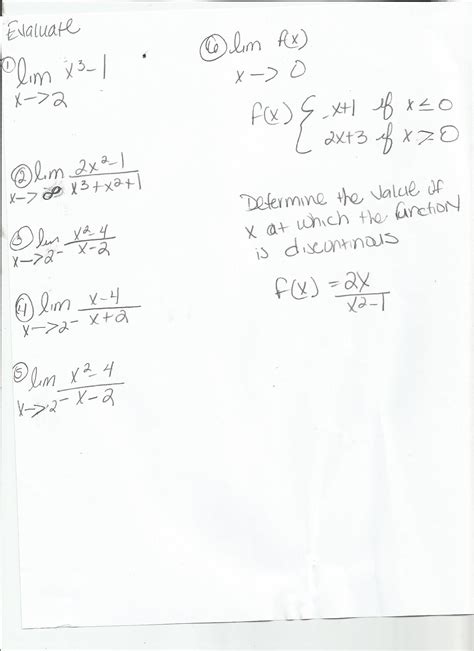 Evaluate
① lim x³-1
x->2
② lim 2x²-1
x->∞ x³+x²+1
③ lim x²-4
x->2⁻ x-2
④ lim x-4
x->2⁻ x+2
⑤ lim x²-4
x->2⁻ x-2
⑥ lim f(x)
x->0
f(x) { -x+1 if x≤0
2x+3 if x>0
Determine the value of
x at which the function
is discontinous
f(x) = 2x
x²-1